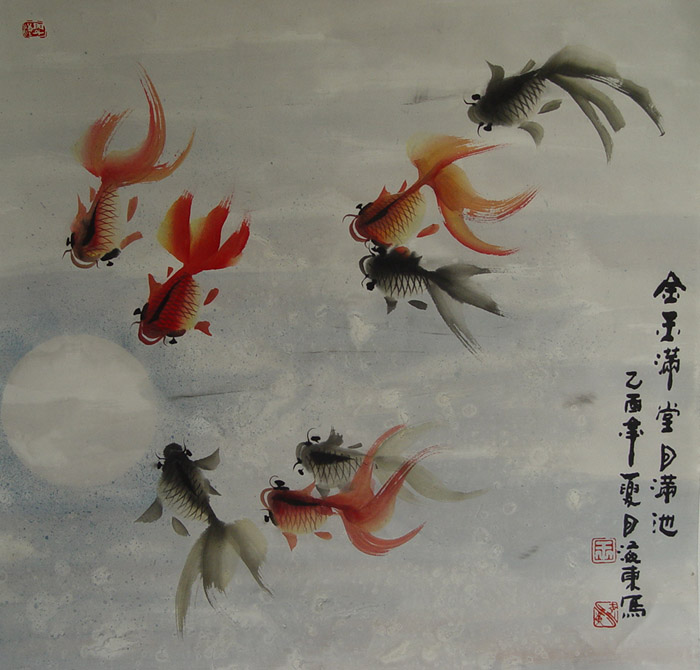 金玉满堂月满池
乙酉年夏月海东写